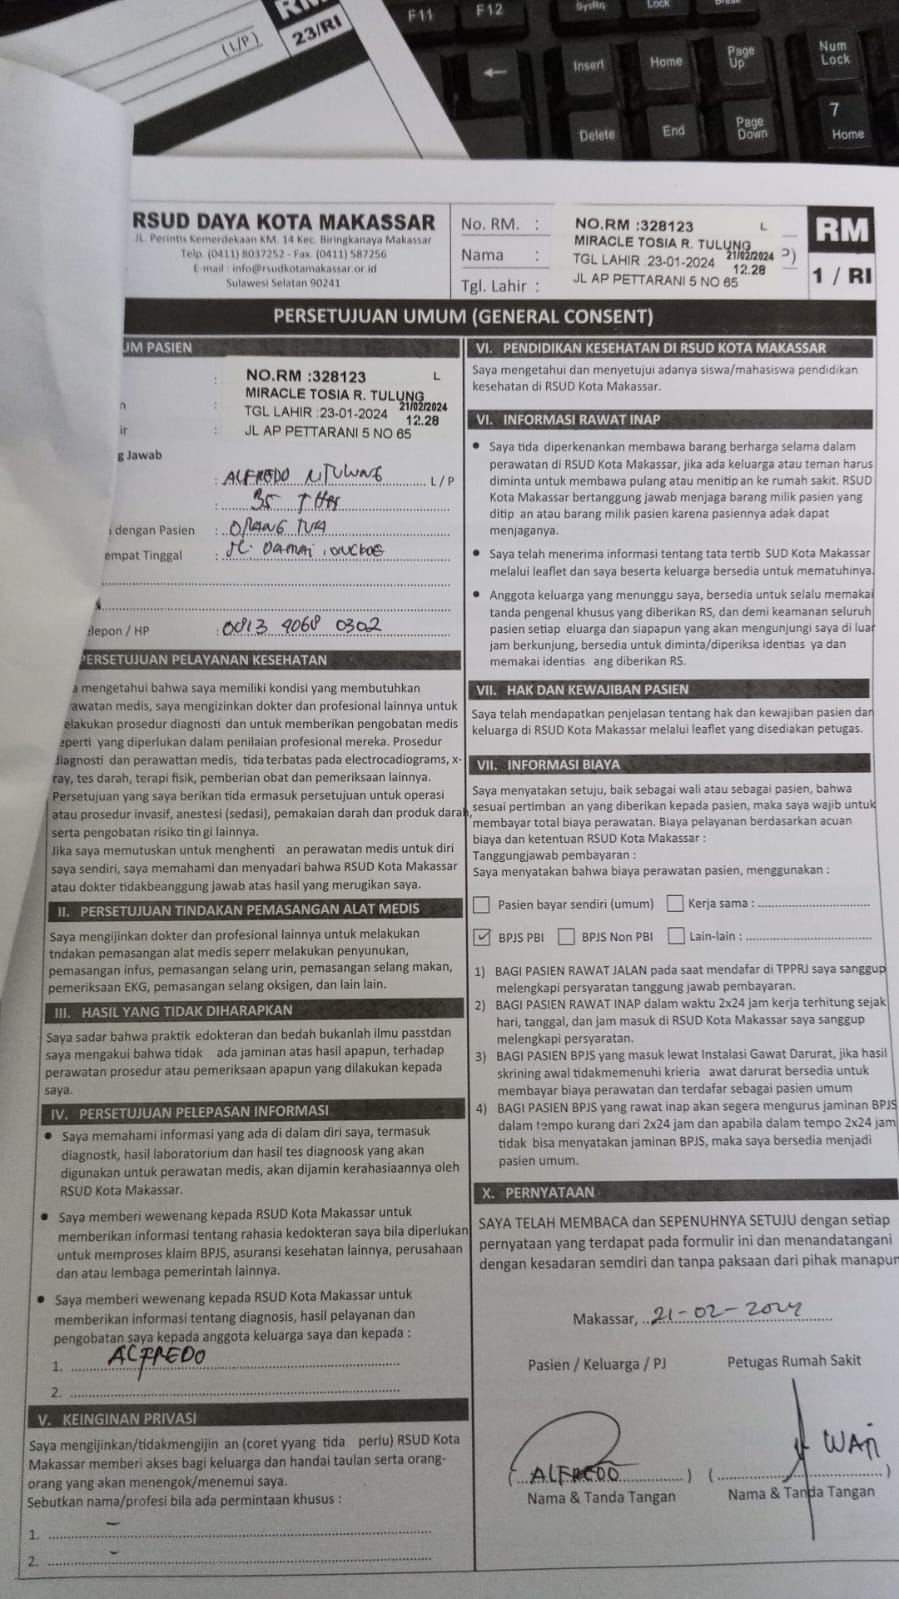 RM
23/RI
(L/P)
F11
F12
SysRq
Lock
Break
Insert
Home
Page Up
Num Lock
Delete
End
Page Down
7
Home
RSUD DAYA KOTA MAKASSAR
JL. Perintis Kemerdekaan KM. 14 Kec. Biringkanaya Makassar
Telp. (0411) 8037252 - Fax. (0411) 587256
E-mail : info@rsudkotamakassar.or.id
Sulawesi Selatan 90241
No. RM. :
Nama :
Tgl. Lahir :
NO.RM :328123 L
MIRACLE TOSIA R. TULUNG
TGL LAHIR :23-01-2024 21/02/2024
12.28
JL AP PETTARANI 5 NO 65
RM
1 / RI
PERSETUJUAN UMUM (GENERAL CONSENT)
UM PASIEN
NO.RM :328123 L
MIRACLE TOSIA R. TULUNG
TGL LAHIR :23-01-2024 21/02/2024
12.28
JL AP PETTARANI 5 NO 65
g Jawab
: ALFREDO NTULUNG L/P
: 35 THN
dengan Pasien : ORANG TUA
empat Tinggal : JL. DAMAI
elepon / HP : 0813 4068 0302
PERSETUJUAN PELAYANAN KESEHATAN
a mengetahui bahwa saya memiliki kondisi yang membutuhkan
rawatan medis, saya mengizinkan dokter dan profesional lainnya untuk
elakukan prosedur diagnosti dan untuk memberikan pengobatan medis
eperti yang diperlukan dalam penilaian profesional mereka. Prosedur
diagnosti dan perawattan medis, tida terbatas pada electrocadiograms, x-
ray, tes darah, terapi fisik, pemberian obat dan pemeriksaan lainnya.
Persetujuan yang saya berikan tida ermasuk persetujuan untuk operasi
atau prosedur invasif, anestesi (sedasi), pemakaian darah dan produk darah,
serta pengobatan risiko tin gi lainnya.
Jika saya memutuskan untuk menghenti an perawatan medis untuk diri
saya sendiri, saya memahami dan menyadari bahwa RSUD Kota Makassar
atau dokter tidakbeanggung jawab atas hasil yang merugikan saya.
II. PERSETUJUAN TINDAKAN PEMASANGAN ALAT MEDIS
Saya mengijinkan dokter dan profesional lainnya untuk melakukan
tndakan pemasangan alat medis seperr melakukan penyunukan,
pemasangan infus, pemasangan selang urin, pemasangan selang makan,
pemeriksaan EKG, pemasangan selang oksigen, dan lain lain.
III. HASIL YANG TIDAK DIHARAPKAN
Saya sadar bahwa praktik edokteran dan bedah bukanlah ilmu passtdan
saya mengakui bahwa tidak ada jaminan atas hasil apapun, terhadap
perawatan prosedur atau pemeriksaan apapun yang dilakukan kepada
saya.
IV. PERSETUJUAN PELEPASAN INFORMASI
• Saya memahami informasi yang ada di dalam diri saya, termasuk
diagnostk, hasil laboratorium dan hasil tes diagnoosk yang akan
digunakan untuk perawatan medis, akan dijamin kerahasiaannya oleh
RSUD Kota Makassar.
• Saya memberi wewenang kepada RSUD Kota Makassar untuk
memberikan informasi tentang rahasia kedokteran saya bila diperlukan
untuk memproses klaim BPJS, asuransi kesehatan lainnya, perusahaan
dan atau lembaga pemerintah lainnya.
• Saya memberi wewenang kepada RSUD Kota Makassar untuk
memberikan informasi tentang diagnosis, hasil pelayanan dan
pengobatan saya kepada anggota keluarga saya dan kepada :
1. ALFREDO
2.
V. KEINGINAN PRIVASI
Saya mengijinkan/tidakmengijin an (coret yyang tida perlu) RSUD Kota
Makassar memberi akses bagi keluarga dan handai taulan serta orang-
orang yang akan menengok/menemui saya.
Sebutkan nama/profesi bila ada permintaan khusus :
1. -
2. -
VI. PENDIDIKAN KESEHATAN DI RSUD KOTA MAKASSAR
Saya mengetahui dan menyetujui adanya siswa/mahasiswa pendidikan
kesehatan di RSUD Kota Makassar.
VI. INFORMASI RAWAT INAP
• Saya tida diperkenankan membawa barang berharga selama dalam
perawatan di RSUD Kota Makassar, jika ada keluarga atau teman harus
diminta untuk membawa pulang atau menitip an ke rumah sakit. RSUD
Kota Makassar bertanggung jawab menjaga barang milik pasien yang
ditip an atau barang milik pasien karena pasiennya adak dapat
menjaganya.
• Saya telah menerima informasi tentang tata tertib SUD Kota Makassar
melalui leaflet dan saya beserta keluarga bersedia untuk mematuhinya.
• Anggota keluarga yang menunggu saya, bersedia untuk selalu memakai
tanda pengenal khusus yang diberikan RS, dan demi keamanan seluruh
pasien setiap eluarga dan siapapun yang akan mengunjungi saya di luar
jam berkunjung, bersedia untuk diminta/diperiksa identias ya dan
memakai identias ang diberikan RS.
VII. HAK DAN KEWAJIBAN PASIEN
Saya telah mendapatkan penjelasan tentang hak dan kewajiban pasien dan
keluarga di RSUD Kota Makassar melalui leaflet yang disediakan petugas.
VII. INFORMASI BIAYA
Saya menyatakan setuju, baik sebagai wali atau sebagai pasien, bahwa
sesuai pertimban an yang diberikan kepada pasien, maka saya wajib untuk
membayar total biaya perawatan. Biaya pelayanan berdasarkan acuan
biaya dan ketentuan RSUD Kota Makassar :
Tanggungjawab pembayaran :
Saya menyatakan bahwa biaya perawatan pasien, menggunakan :
☐ Pasien bayar sendiri (umum) ☐ Kerja sama :
☑ BPJS PBI ☐ BPJS Non PBI ☐ Lain-lain :
1) BAGI PASIEN RAWAT JALAN pada saat mendafar di TPPRJ saya sanggup
melengkapi persyaratan tanggung jawab pembayaran.
2) BAGI PASIEN RAWAT INAP dalam waktu 2x24 jam kerja terhitung sejak
hari, tanggal, dan jam masuk di RSUD Kota Makassar saya sanggup
melengkapi persyaratan.
3) BAGI PASIEN BPJS yang masuk lewat Instalasi Gawat Darurat, jika hasil
skrining awal tidakmemenuhi krieria awat darurat bersedia untuk
membayar biaya perawatan dan terdafar sebagai pasien umum
4) BAGI PASIEN BPJS yang rawat inap akan segera mengurus jaminan BPJS
dalam tempo kurang dari 2x24 jam dan apabila dalam tempo 2x24 jam
tidak bisa menyatakan jaminan BPJS, maka saya bersedia menjadi
pasien umum.
X. PERNYATAAN
SAYA TELAH MEMBACA dan SEPENUHNYA SETUJU dengan setiap
pernyataan yang terdapat pada formulir ini dan menandatangani
dengan kesadaran semdiri dan tanpa paksaan dari pihak manapun
Makassar, 21-02-2024
Pasien / Keluarga / PJ
Petugas Rumah Sakit
(ALFREDO)
(WATI)
Nama & Tanda Tangan
Nama & Tanda Tangan